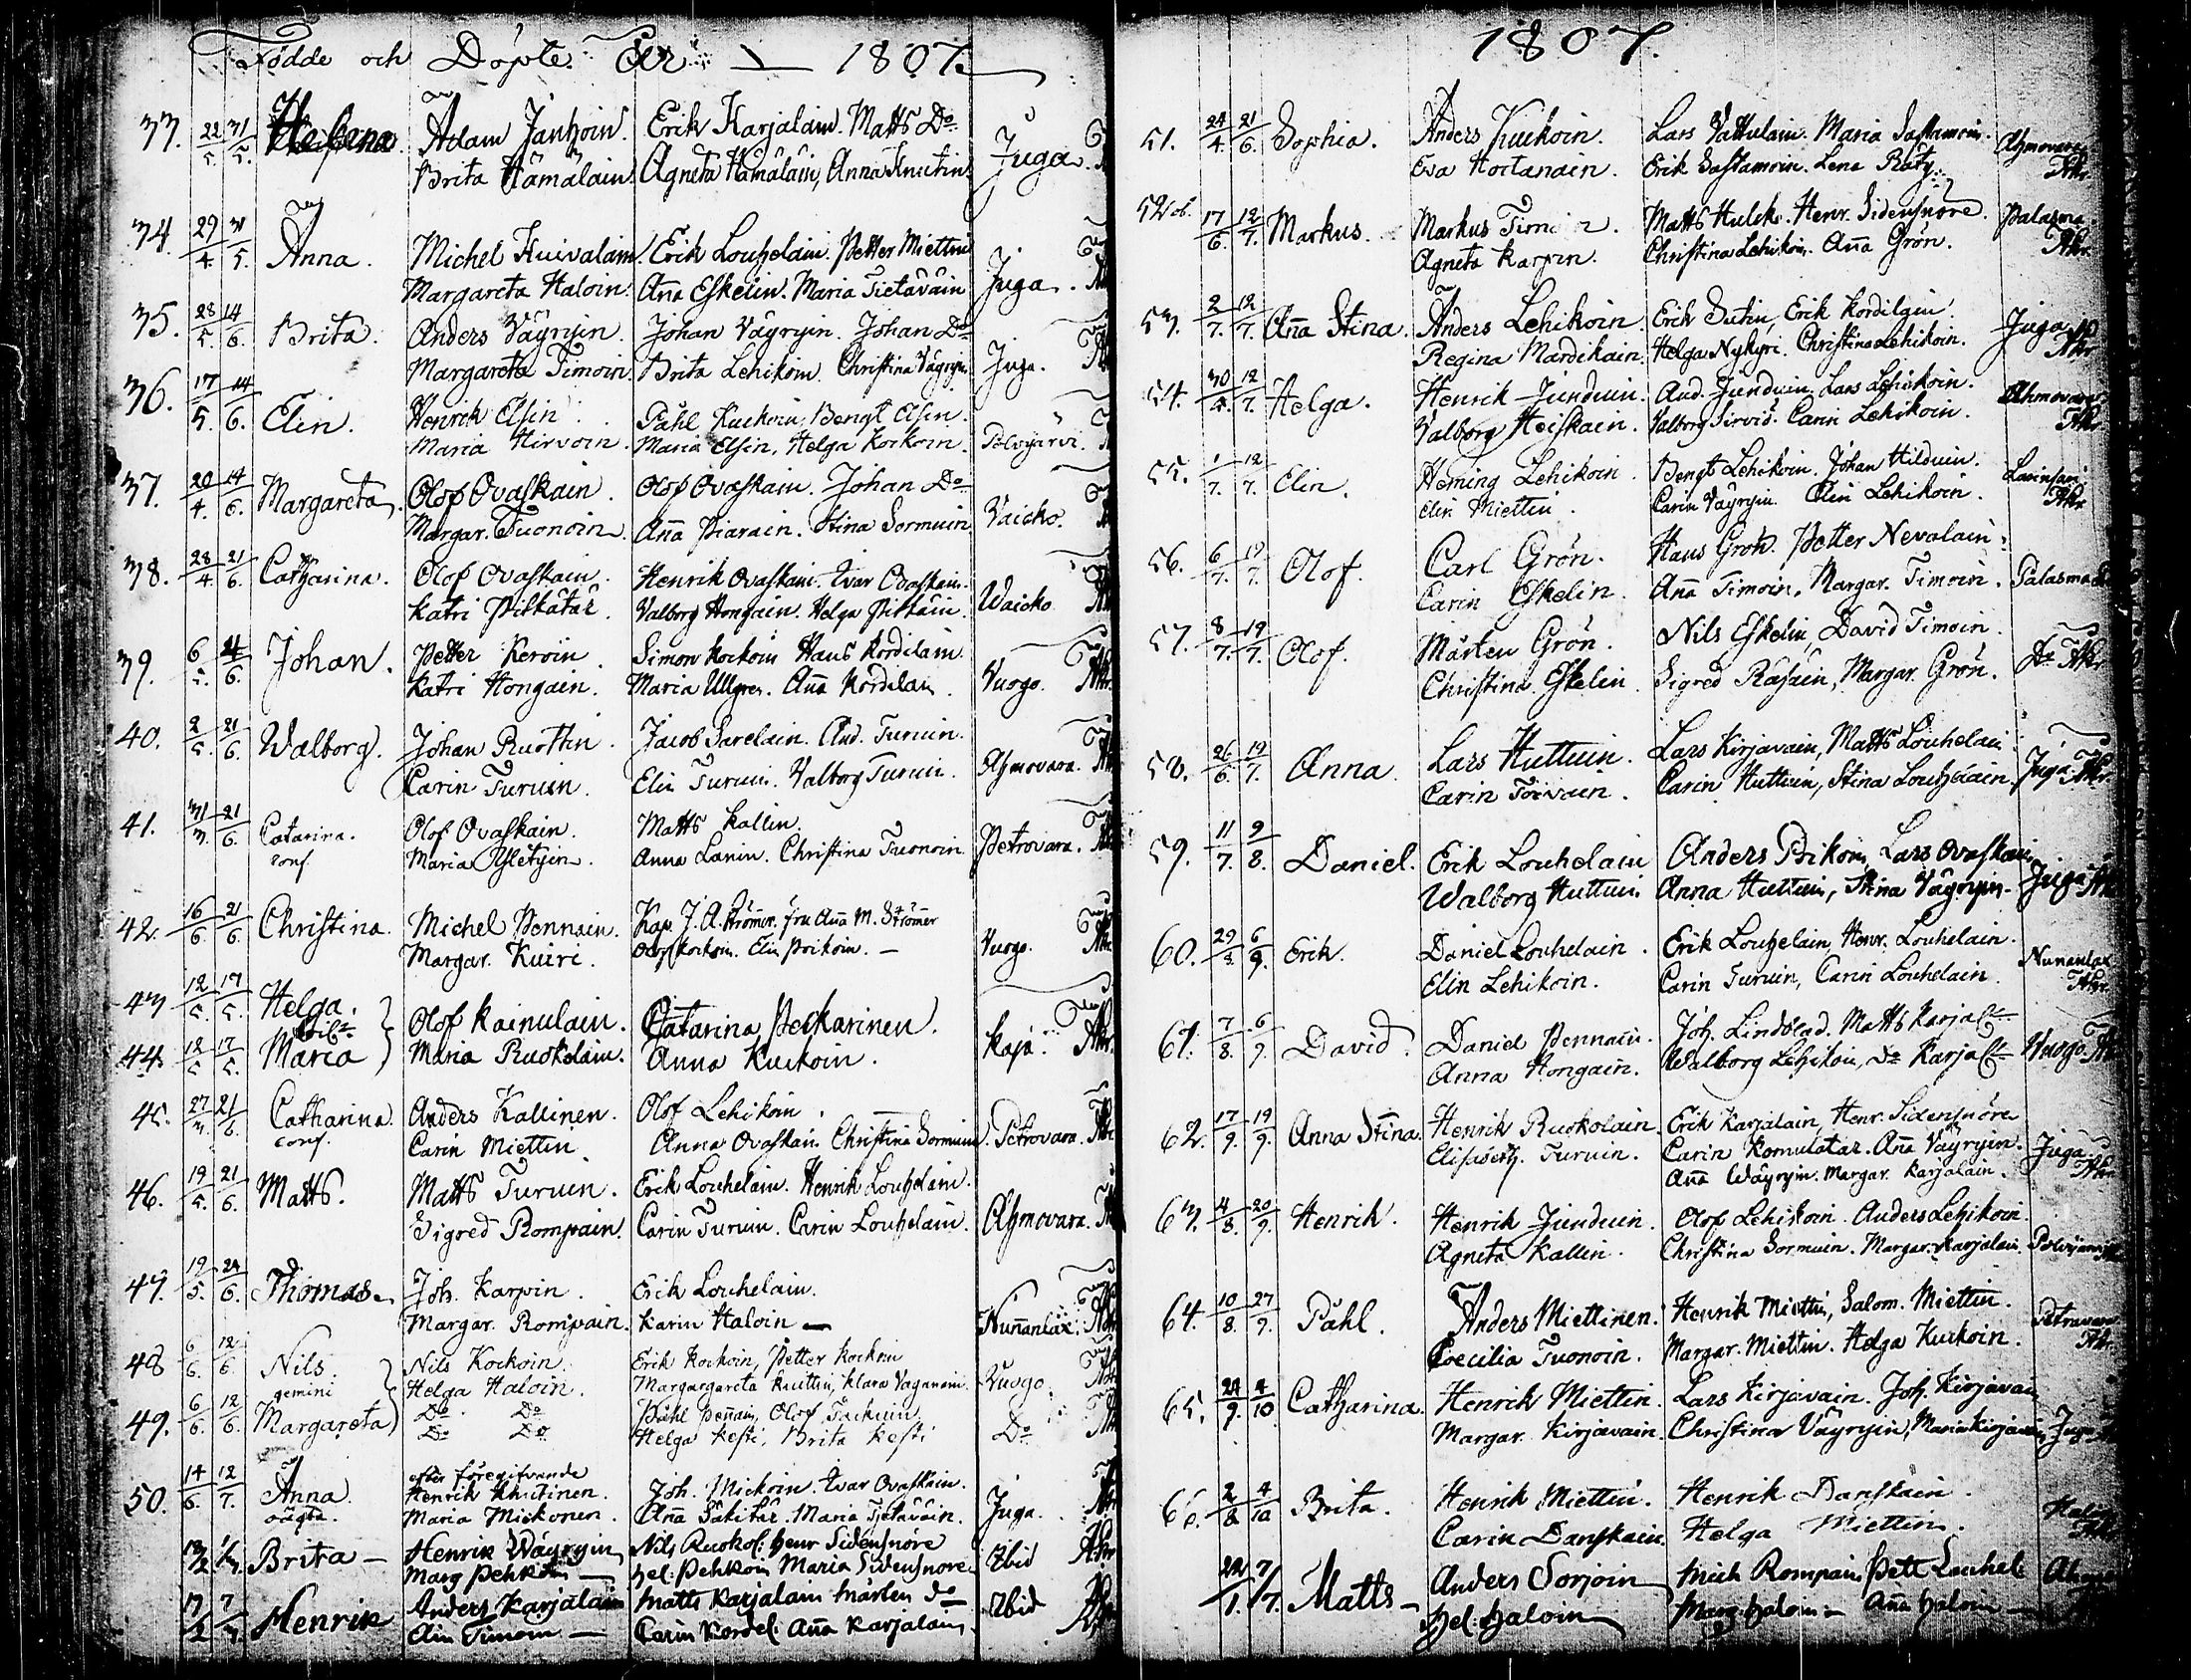 Födde och Döpte År 1807.
33. 22/5. 31/5. Helena. Adam Janhoin. Erik Karjalain. Matts Do
Brita Hämäläin. Agneta Hämäläin, Anna Knutin Juga.
34. 29/4 31/5. Anna. Michel Huivalain. Erik Louhelain. Petter Miettin
Margareta Haloin. Aña Eskelin. Maria Tietäväin Juga.
35. 28/5. 14/6. Brita. Anders Väyryin. Johan Väyryin. Johan Do
Margareta Timoin. Brita Lehikoin. Christina Väyryin Juga.
36. 17/5. 14/6. Elin. Henrik Elsin. Påhl Kuckoin, Bengt Elsin.
Maria Hirvoin. Maria Elsin, Helga Kockoin. Polvijärvi.
37. 20/4. 14/6. Margareta. Olof Ovaskain. Olof Ovaskain. Johan Do
Margar. Tuonoin. Aña Piarain. Stina Sormuin Vaicko.
38. 28/4. 21/6. Catharina. Olof Ovaskain. Henrik Ovaskain. Ivar Ovaskain.
Katri Pitkätär. Valborg Hongain. Helga Pitkäin. Waicko
39. 6/5. 21/6. Johan. Petter Keroin. Simon Kockoin Hans Kordilain.
Katri Hongain. Maria Ullgren. Aña Kordilain. Vuogo.
40. 2/5. 21/6. Walborg. Johan Ruottin. Jacob Sarelain. And. Turuin.
Carin Turuin. Elin Turuin. Valborg Turuin. Ahmovara.
41. 31/3. 21/6. Catarina. Olof Ovaskain. Matts Kallin.
conf. Maria Asletyin. Anna Lanin. Christina Tuonoin. Petrovara.
42. 16/6. 21/6. Christina. Michel Pennain. Kap. J. A. Strömer. fru Aña M. Strömer
Margar. Kuiri. Olof Kockoin. Elin Poikoin. Vuogo.
43 12/5. 17/5. Helga.
Olof Kainulain. Catarina Peckarinen.
44. 12/5 17/5. Maria Maria Ruokolain. Anna Kuckoin. Kajå.
45. 27/3. 21/6. Catharina. Anders Kallinen. Olof Lehikoin.
conf. Carin Miettin Anna Ovaskain. Christina Sormuin. Petrovara.
46. 19/5. 21/6. Matts. Matts Turuin. Erik Louhelain. Henrik Louhelain.
Sigred Rompain. Carin Turuin. Carin Louhelain. Ahmovara.
47. 19/5. 24/6. Thomas. Joh. Karpin. Erik Louhelain.
Margar. Rompain. Karin Haloin Nuñanlax.
48 6/6. 12/6. Nils. Nils Kockoin. Erik Kockoin, Petter Kockoin
gemini Helga Haloin. Margargareta Kuittin, Klara Vaganain. Vuogo.
49. 6/6. 12/6. Margareta Do Do Påhl Peñain, Olof Tackuin
Do Do Helga Kesti, Brita Kesti Do
50. 14/6. 12/7. Anna. efter föregifvande
Henrik Knutinen. Joh. Mickoin. Ivar Ovaskain.
oägta. Maria Mickonen. Aña Säkitär. Maria Tjetäväin. Juga.
Brita Henrik Wäyryin Nils Ruokol: Henr Sidensnöre
Marg Pehkoin Hel: Pehkoin Maria Sidensnöre Ibid
17/2 Henrik Anders Karjalain Matts Karjalain Mårten do
Elin Timoin Carin Kordel: Aña Karjalain. Ibid
1807.
51. 24/4. 21/6. Sophia. Anders Kuckoin. Lars Vattulain. Maria Sastamoin. Ahmovara
Eva Hortanain. Erik Sastamoin. Lena Räty.
52 ob. 17/6. 12/7. Markus. Markus Timoin. Matts Hulck. Henr. Sidensnöre. Palasma.
Agneta Karpin. Christina Lehikoin. Aña Grön.
53. 2/7. 12/7. Aña Stina. Anders Lehikoin. Erik Sutin, Erik Kordilain. Juga
Regina Mardikain. Helga Nykyri. Christina Lehikoin.
54. 30/5. 12/7. Helga. Henrik Junduin. And. Junduin, Lars Lehikoin. Ahmovara
Valborg Heiskain. Valborg Sirviö. Carin Lehikoin.
55. 1/7. 12/7. Elin. Heming Lehikoin. Bengt Lehikoin. Johan Hilduin.
Elin Miettin. Carin Väyryin. Elin Lehikoin.
56. 6/7. 19/7. Olof. Carl Grön. Hans Groh. Petter Nevalain.
Carin Eskelin. Aña Timoin, Margar. Timoin. Palasma
57. 8/7. 19/7. Olof. Mårten Grön. Nils Eskelin, David Timoin.
Christina Eskelin. Sigred Räsäin, Margar. Grön. Do
58. 26/6. 19/7. Anna Lars Huttuin. Lars Kirjavain, Matts Louhelain
Carin Toivain. Carin Huttuin, Stina Louhelain. Juga
59. 11/7. 9/8. Daniel. Erik Louhelain Anders Poikoin, Lars Ovaskain
Walborg Huttuin Anna Huttuin, Stina Väyryin. Juga
60. 29/8. 6/9. Erik. Daniel Louhelain. Erik Louhelain, Henr. Louhelain. Nunanlax
Elin Lehikoin. Carin Turuin, Carin Louhelain.
61. 7/8. 6/9. David. Daniel Pennain. Joh. Lindblad. Matts Karjal
Anna Hongain. Walborg Lehikoin, Do Karjal Vuogo
62. 17/9. 19/9. Anna Stina. Henrik Ruokolain. Erik Karjalain, Henr. Sidensnöre
Elisabeth. Turuin. Carin Komulatar. Aña Väyryin. Juga.
Aña Wäyryin. Margar. Karjalain.
63. 4/8. 20/9. Henrik. Henrik Junduin. Olof Lehikoin. Anders Lehikoin.
Agneta Kallin. Christina Sormuin. Margar. Karjalain. Polvijärvi
64. 10/8. 27/9. Påhl. Anders Miettinen. Henrik Miettin, Salom. Miettin. Petravara
Coecilia Tuonoin. Margar. Miettin. Helga Kuckoin.
65. 24/9. 4/10 Catharina. Henrik Miettin. Lars Kirjavain. Joh. Kirjavain
Margar. Kirjavain. Christina Väyryin, Maria Kirjavain Juga
66. 2/8. 4/10 Brita. Henrik Miettin. Henrik Danskain.
Carin Danskain. Helga Miettin.
22/1. 7/7. Matts Anders Sorjoin Mich Rompain Pett Louhel:
Hel: Haloin Marg: Haloin Aña Haloin